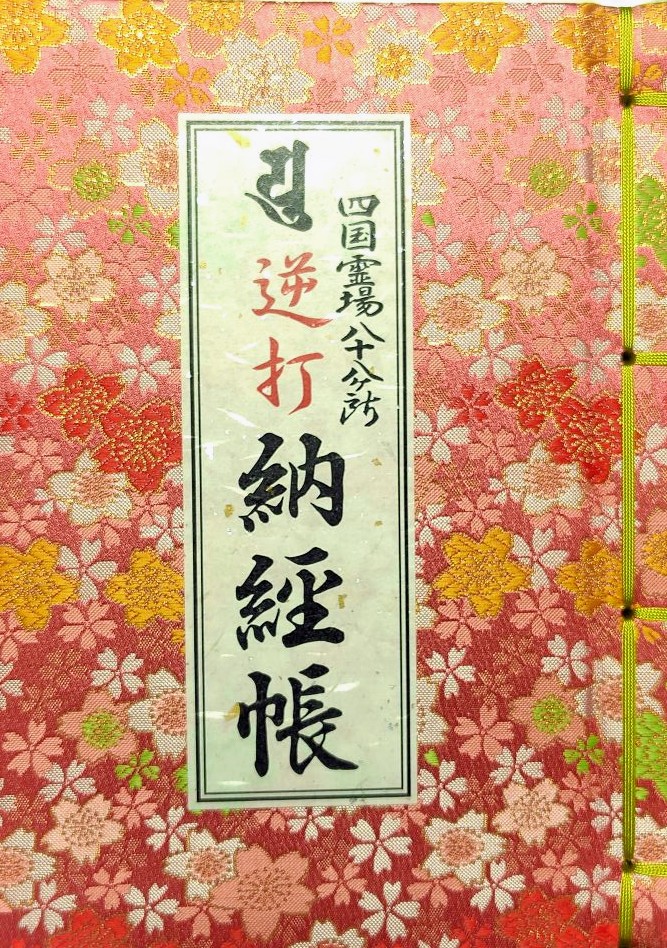 四国霊場八十八ヶ所
逆打
納經帳